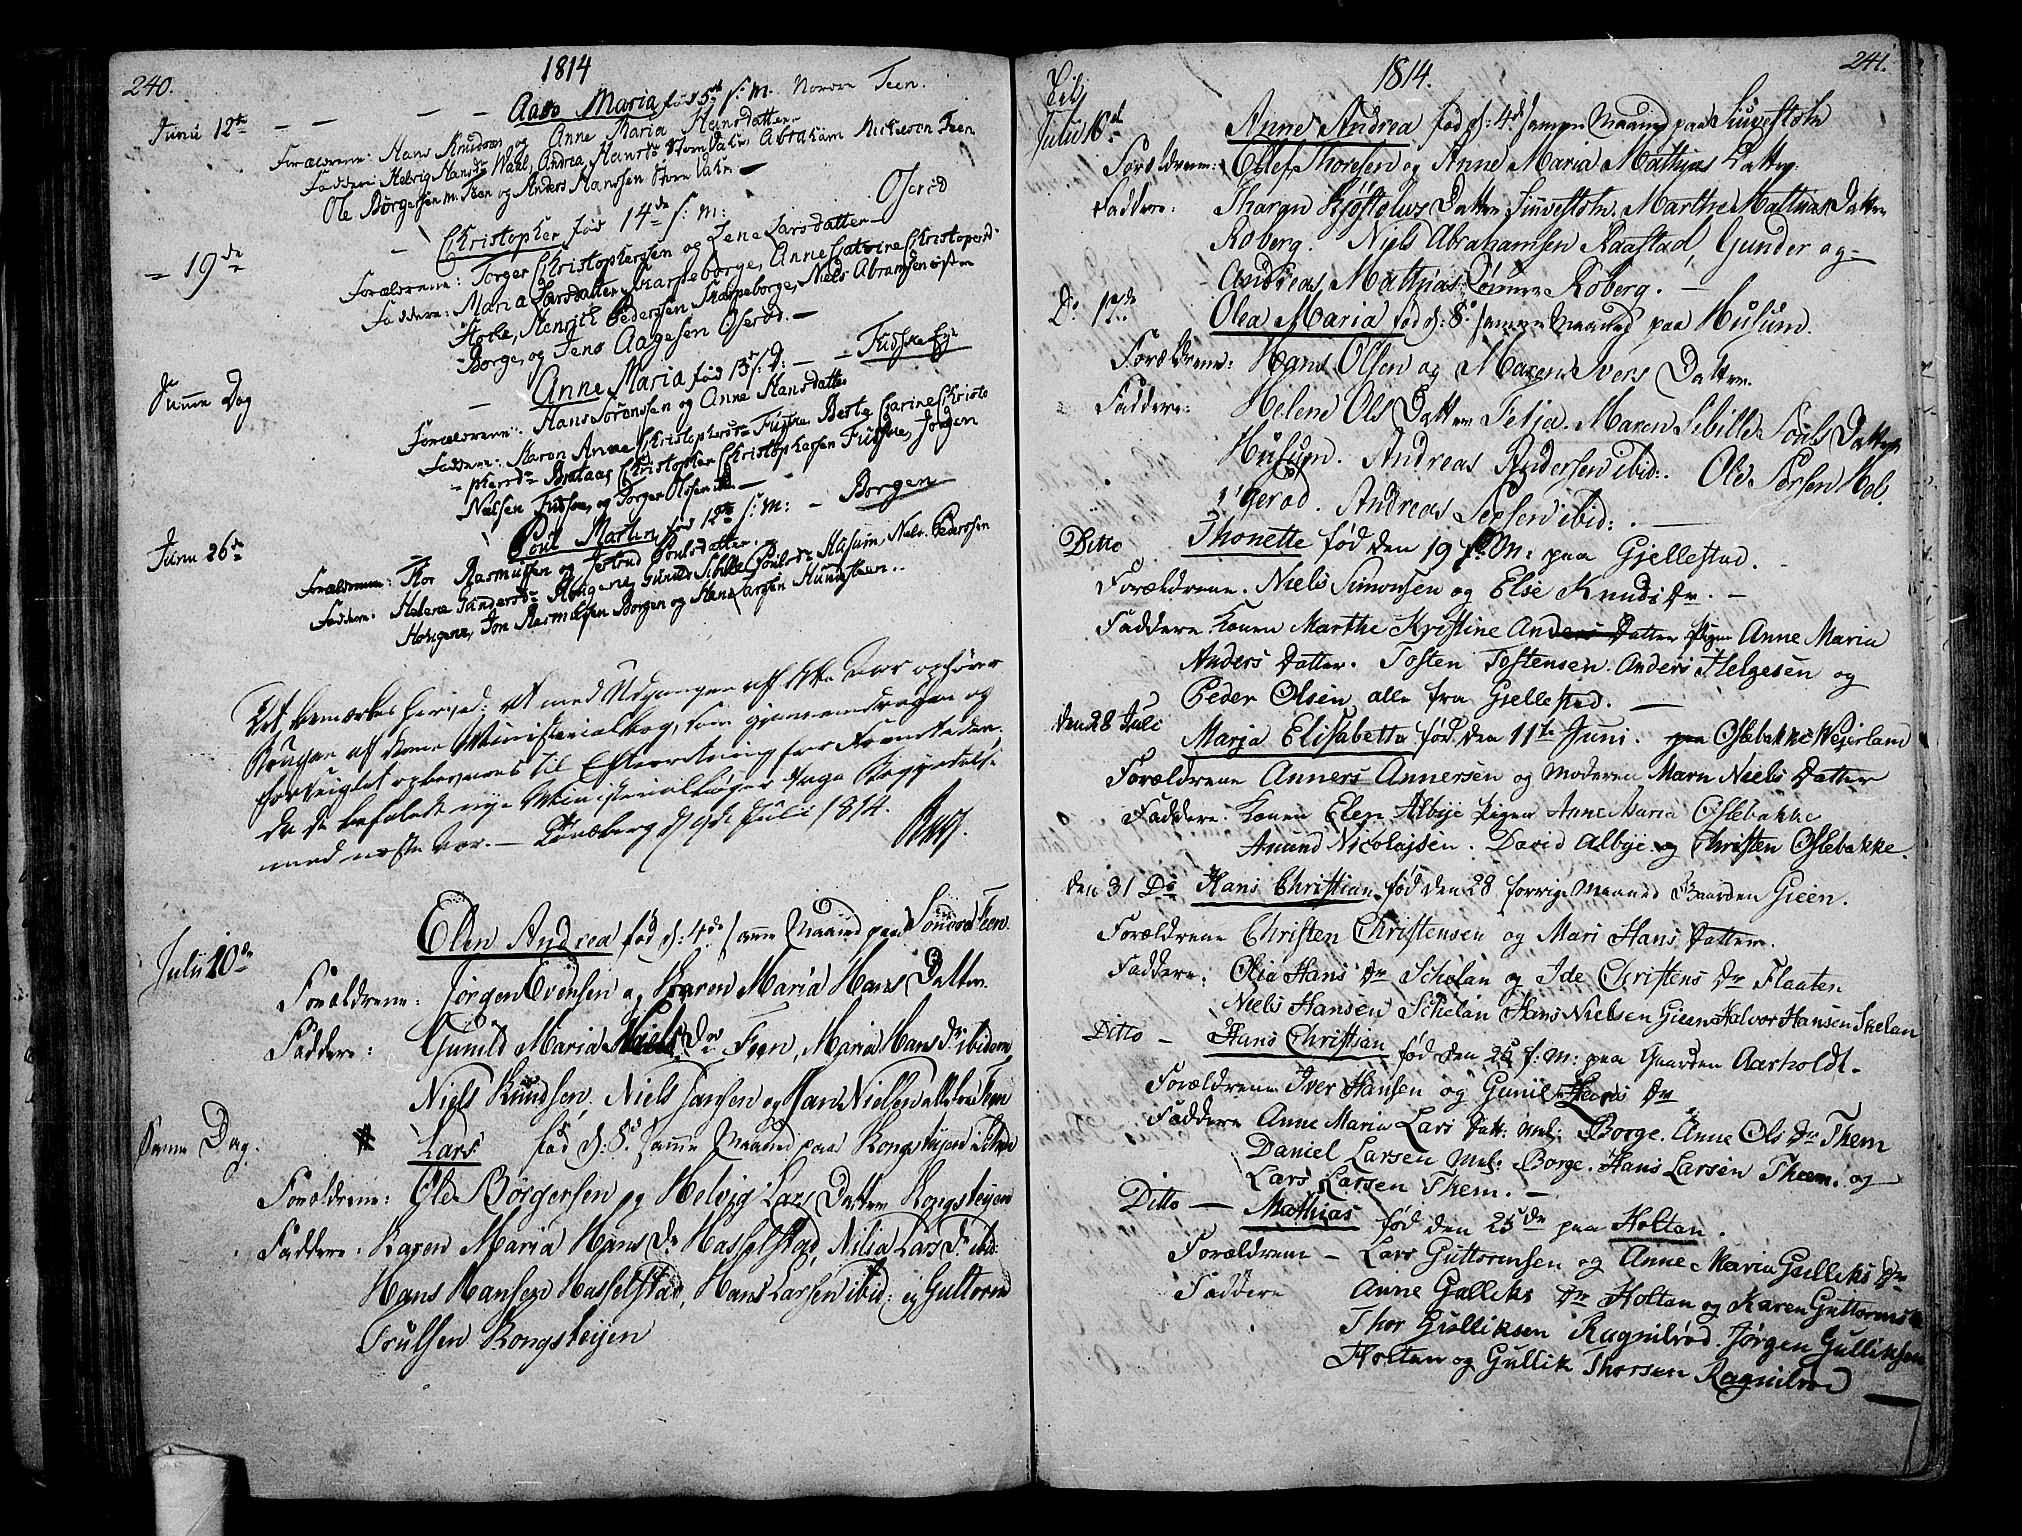 240.
1814
Junii 12te — — — — Aase Maria fød 5te s: m. Nordre Teen.
Forældrene: Hans Knudsen og Anne Maria Hansdatter
Faddere: Helvig Hansdr Wael, Andrea Hansdr Stordahl, Abraham Nielsen Teen
Ole Børgersen m: Teen og Anders Hanssen
— 19de — Christopher fød 14de s: m: Oserød
Forældrene: Torger Christophersen og Lene Larsdatter
Faddere: Maria Larsdatter Skarpeborge, Anne Catrine Christophersdr
Henrich Pedersen Skarpeborge, Niels Abramsen østre
Borge, og Jens Aagesen Oserød. —
Samme Dag — Anne Maria fød 13 s: d: — Fudskeeje
Forældrene: Hans Sørenssen og Anne Hansdatter
Faddere: Karen Anne Christophersdr Berte Carine Christo
phersdr Brataas, Christopher Christophersen Jørgen
Nielsen og Torger Olssen ibid —
Junii 26de Poul Martin fød 12te s: m: — Borgen
Forældrene: Hor Rasmussen og Jertrud Poulsdatter
Faddere: Helene Gundersdr Hougene, Gunild Sibille Poulsdr Husum, Niels Pederssen
Hougene, Jon Rasmussen Borgen og Hans Larssen
Det bemærkes herved: At med Udgangen af dette Aar ophører
Brugen af denne Ministerialbog, som gjennemdragen og
forseiglet opbevares til Efterretning for Fremtiden,
da de befalede nye Ministerialbøger tages Begyndelse
med næste Aar. — Tønsberg d 9de Julii 1814.
Julii 10de Elen Andrea fød d: 4de samme Maaned paa Søndre Teen.
Forældrene: Jørgen Evensen og Karen Maria Hans Datter.
Faddere: Gunild Maria Niels Dr Teen, Maria Hans Dr ibidem
Niels Knudsen, Niels Jansen og Hans Nielsen alle fra Teen
Samme Dag. # Lars fød d: 8de samme Maaned paa Kongsteijen
Forældrene: Ole Børgersen og Helvig Lars Datter Kongsteijen
Faddere: Karen Maria Hans Dr Hasselstad, Nilia Lars Dr ibid:
Hans Hansen Hasselstad, Hans Larsen ibid: og Guttorm
Trulssen Kongsteijen
241.
1814.
Julii 16de Anne Andrea fød d: 4de samme Maaned paa
Forældrene: Ellef Thoresen og Anne Maria Mathias Datter.
Faddere: Marthe Mathias Datter
Roberg. Niels Abrahamsen Raastad, Gunder og
Andreas Mathias Sønner Roberg. —
Do 17de Olea Maria fød d: 8de samme Maaned paa Husum.
Forældrene: Hans Olsen og Maren Ivers Datter.
Faddere: Helene Ols Datter Maren Sibille Pouls Datter
Husum. Andreas Andersen ibid:. Ole Mel.
Andreas ibid: . —
Ditto Thonette fød den 19 s: M: paa Gjellestad. —
Forældrene. Niels Simonsen og Else Knuds Dr. —
Faddere. Konen Marthe Kristine Anders Datter Pigen Anne Maria
Anders Datter. Tosten Tostensen. Anders Helgesen og
Peder Olsen alle fra Gjellestad. —
den 28 Juli Marja Elisabetta fød den 11te Juni. paa Oslebakke Wejerland
Forældrene Anners Annersen og Moderen Marn Niels Datter
Faddere. Konen Elen Albye Pigen Anne Maria Oslebakke
Amund Nicolajsen. David Albye og Christen Oslebakke.
den 31 Do Hans Christian fød den 28 forrige Maaned Gaarden Gieen.
Forældrene Christen Christensen og Mari Hans Datter.
Faddere. Olia Hans Dr Schelan og Ide Christens Dr Flaaten
Niels Hansen Schelan Hans Nielsen Gieen Halvor Hansen Skelan
Ditto — Hans Christian fød den 25 s: M: paa Gaarden Aarholdt.
Forældrene Iver Hansen og Gunil Dr
Faddere Anne Maria Lars Datt: Mel: Borge. Anne Ols Dr Them
Daniel Larsen Mel: Borge. Hans Larsen Theem. og
Lars Larsen Them. —
Ditto — Mathias fød den 25de paa Holtan.
Forældrene — Lars Guttormsen og Anne Maria Gulliks Dr
Faddere Anne Gulliks Dr Holtan og Karen Guttorms
Thor Gulliksen Ragnilrød. Jørgen Gulliksen
Holtan og Gullik Thorsen Ragnilrød —